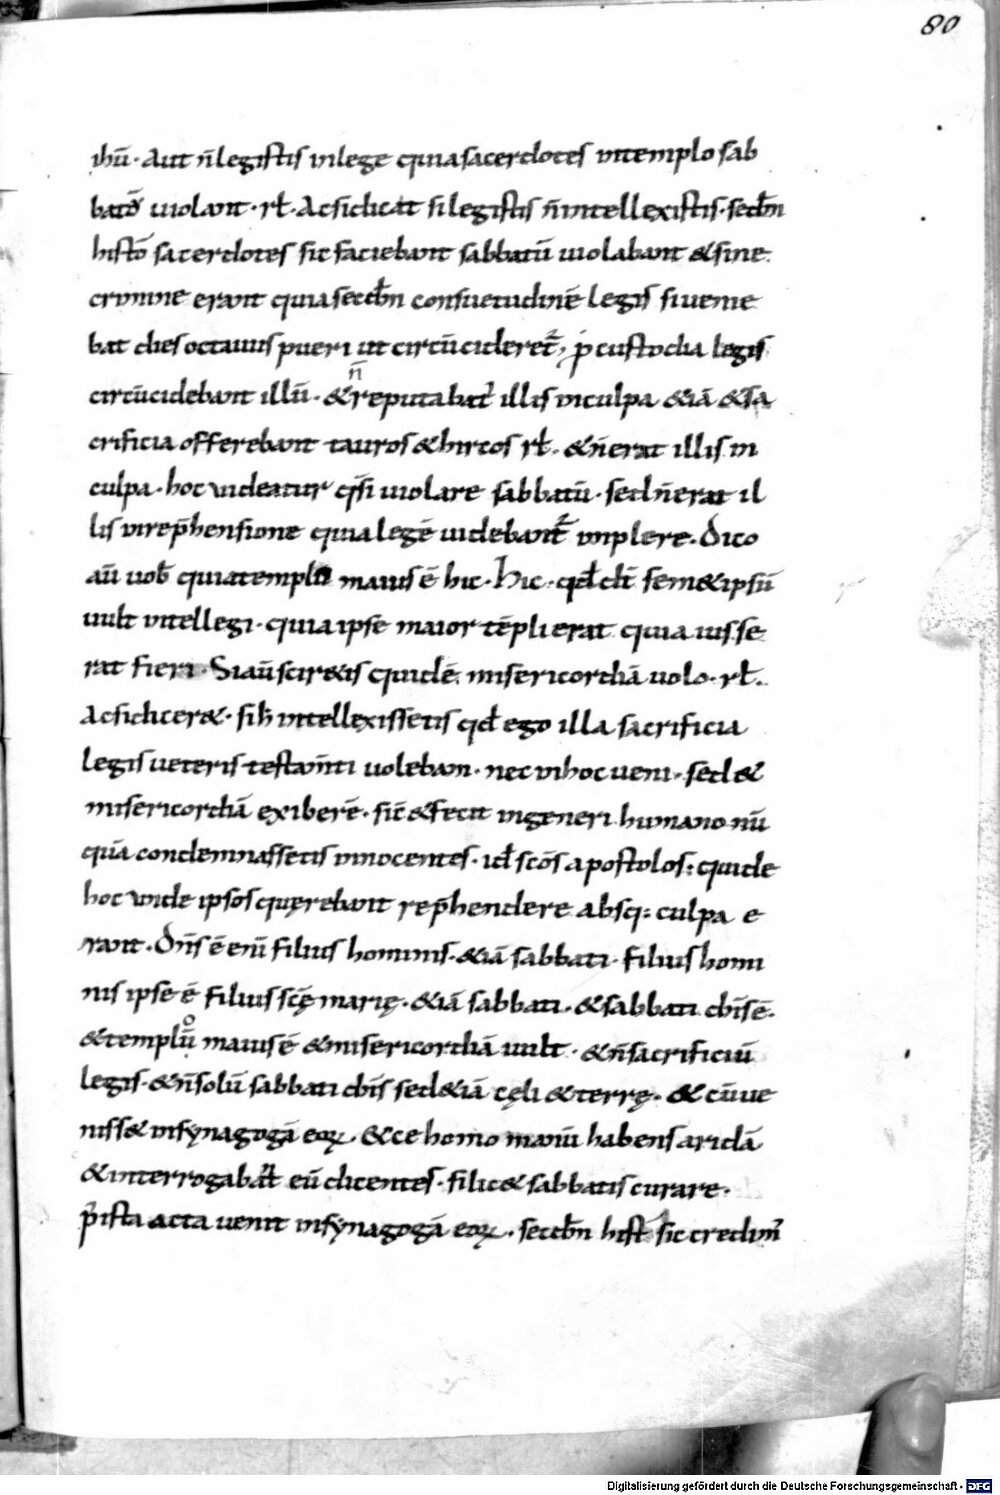 80
ihū· Aut n̄legistis inlege quiasacerdotes intemplo sab
batō uiolant· rł· Acsidicat silegistis n̄intellexistis· secđm
histō sacerdotes sic faciebant sabbatū uiolabant &sine
crimine erant quiasecđm consuetudinē legis siuenie
bat diesoctauus pueri ut circūcideret̄, p custodia legis
circūcidebant illū· & n̄ reputabat᷑ illis inculpa &iā &sa
crificia offerebant tauros &hircos rł· &n̄erat illis in
culpa· hoc uideatur qsi uiolare sabbatū· sedn̄erat il
lis inrep̄hensione quialegē uidebant᷑ implere· Dico
aū uob̄ quiatemplo maius ē hic· hic· qđ dīc̄ sem&ipsū
uult intellegi· quiaipse maior tēpli erat quia iusse
rat fieri· Siaūscir&is quidē· misericordiā uolo· rł·
Acsidicer&· sih̄ intellexissetis qđ ego illa sacrificia
legis ueteris testam̄ti uolebam· nec inhoc ueni· sed&
misericordiā exiberē· sic̄ &fecit ingeneri humano nū
quā condemnassetis innocentes· iđ scōs apostolos: quide
hoc unde ipsos quęrebant rep̄hendere absq; culpa e
rant· Dn̄s ē enī filius hominis· &iā sabbati· filius homi
nis ipse ē filius scę̄ marię· &iā sabbati· &sabbati dn̄s ē·
&templū o maius ē &misericordiā uult· &n̄sacrificiū
legis· &n̄solū sabbati dn̄s sed&iā cęli &terrę· & cū ue
niss& insynagogā eoꝝ· &ce homo manū habens aridā
&interrogabāt eū dicentes· silic& sabbatis curare·
p̄ista acta uenit insynagogā eoꝝ· secđm hist̄ sic credim᷒
Digitalisierung gefördert durch die Deutsche Forschungsgemeinschaft - DFG